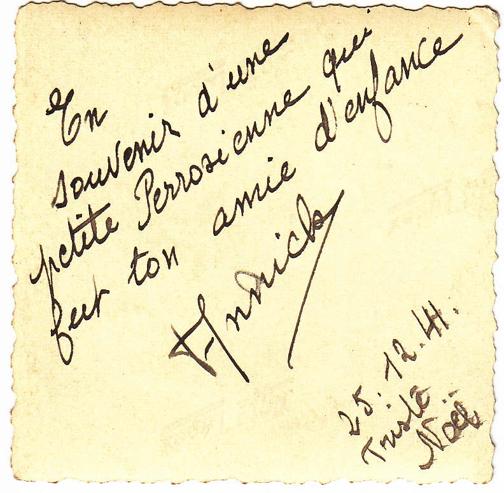 En
souvenir d'une
petite Perrosienne qui
fut ton amie d'enfance
Annick
25.12.41.
Triste
Noël